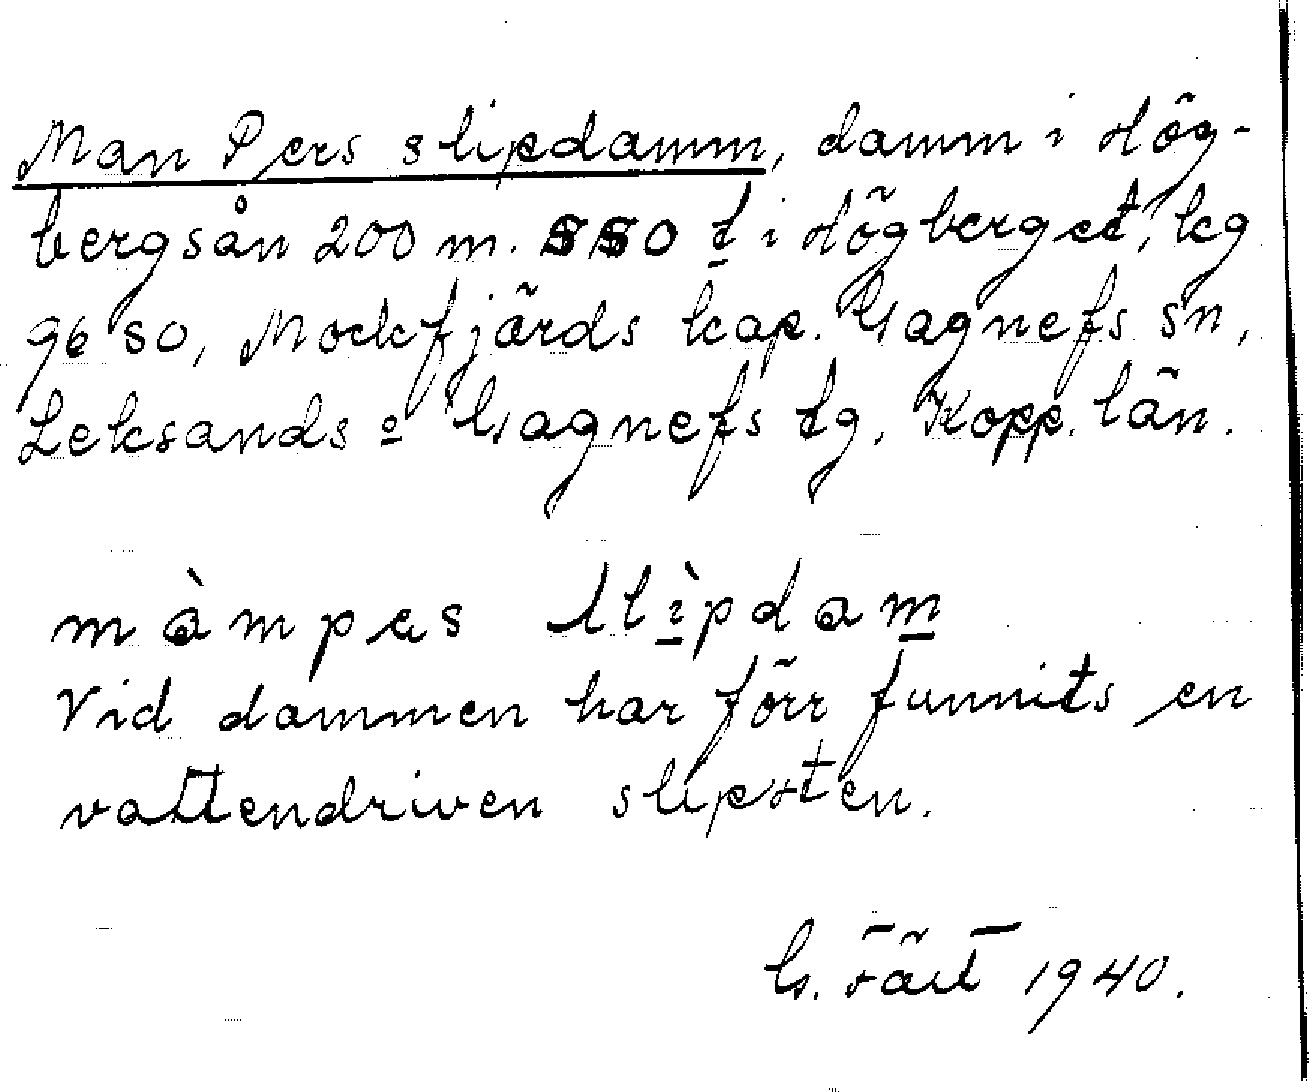 Man Pers slipdamm, damm i Hög-
bergsån 200 m. SSO t i Högberget, kg
96 SO, Mockfjärds kap. Gagnefs sn,
Leksands o Gagnefs tg, Kopp. län.
màmpes slìpdam
Vid dammen har förr funnits en
vattendriven slipsten.
G. 1940.